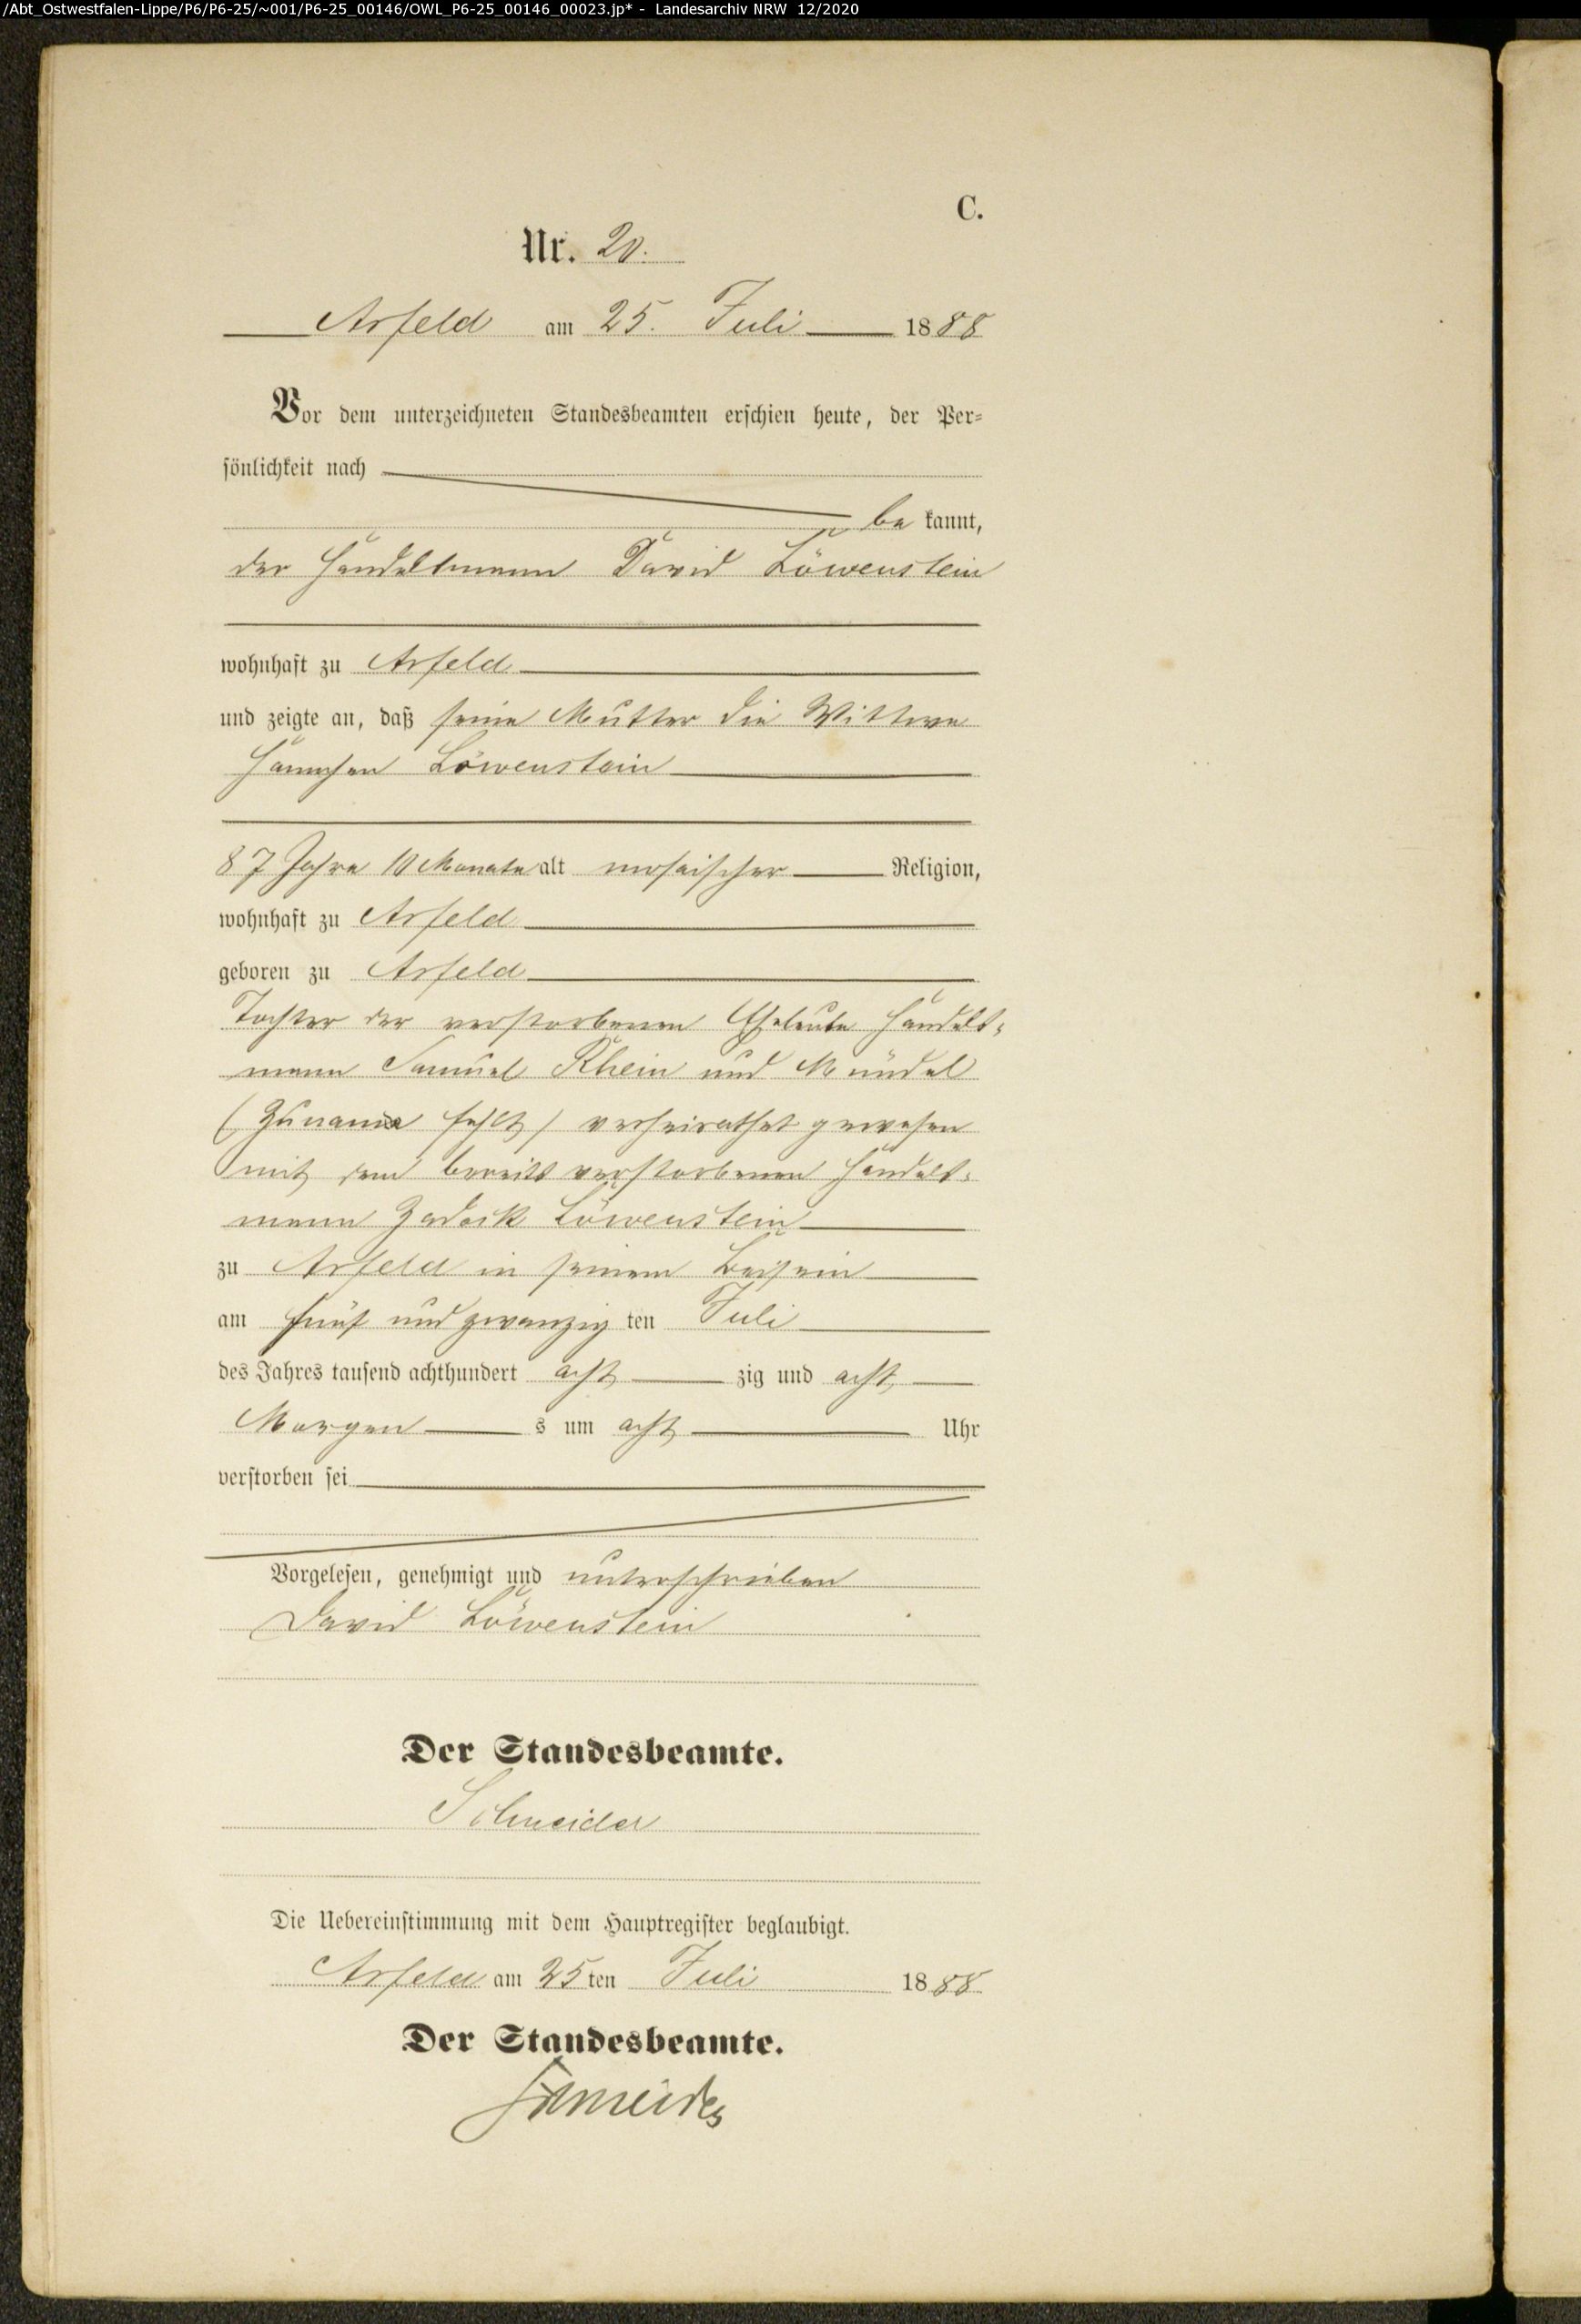 /Abt_Ostwestfalen-Lippe/P6/P6-25/~001/P6-25_00146/OWL_P6-25_00146_00023.jp* - Landesarchiv NRW 12/2020
C.
Nr. 20.
Arfeld am 25. Juli 1888
Vor dem unterzeichneten Standesbeamten erschien heute, der Per-
sönlichkeit nach
be kannt,
der Handelsmann David Löwenstein
wohnhaft zu Arfeld
und zeigte an, daß seine Mutter die Wittwe
Hannchen Löwenstein
87 Jahre 10 Monate alt mosaischer Religion,
wohnhaft zu Arfeld
geboren zu Arfeld
Tochter der verstorbenen Eheleute Handels-
mann Samuel Rhein und Mündel
(Zuname fehlt) verheirathet gewesen
mit dem bereits verstorbenen Handels-
mann Zadock Löwenstein
zu Arfeld in seinem Beisein
am fünf und zwanzig ten Juli
des Jahres tausend achthundert acht zig und acht
Morgen s um acht Uhr
verstorben sei
Vorgelesen, genehmigt und unterschrieben
David Löwenstein
Der Standesbeamte.
Schneider
Die Uebereinstimmung mit dem Hauptregister beglaubigt.
Arfeld am 25ten Juli 1888.
Der Standesbeamte.
Schneider